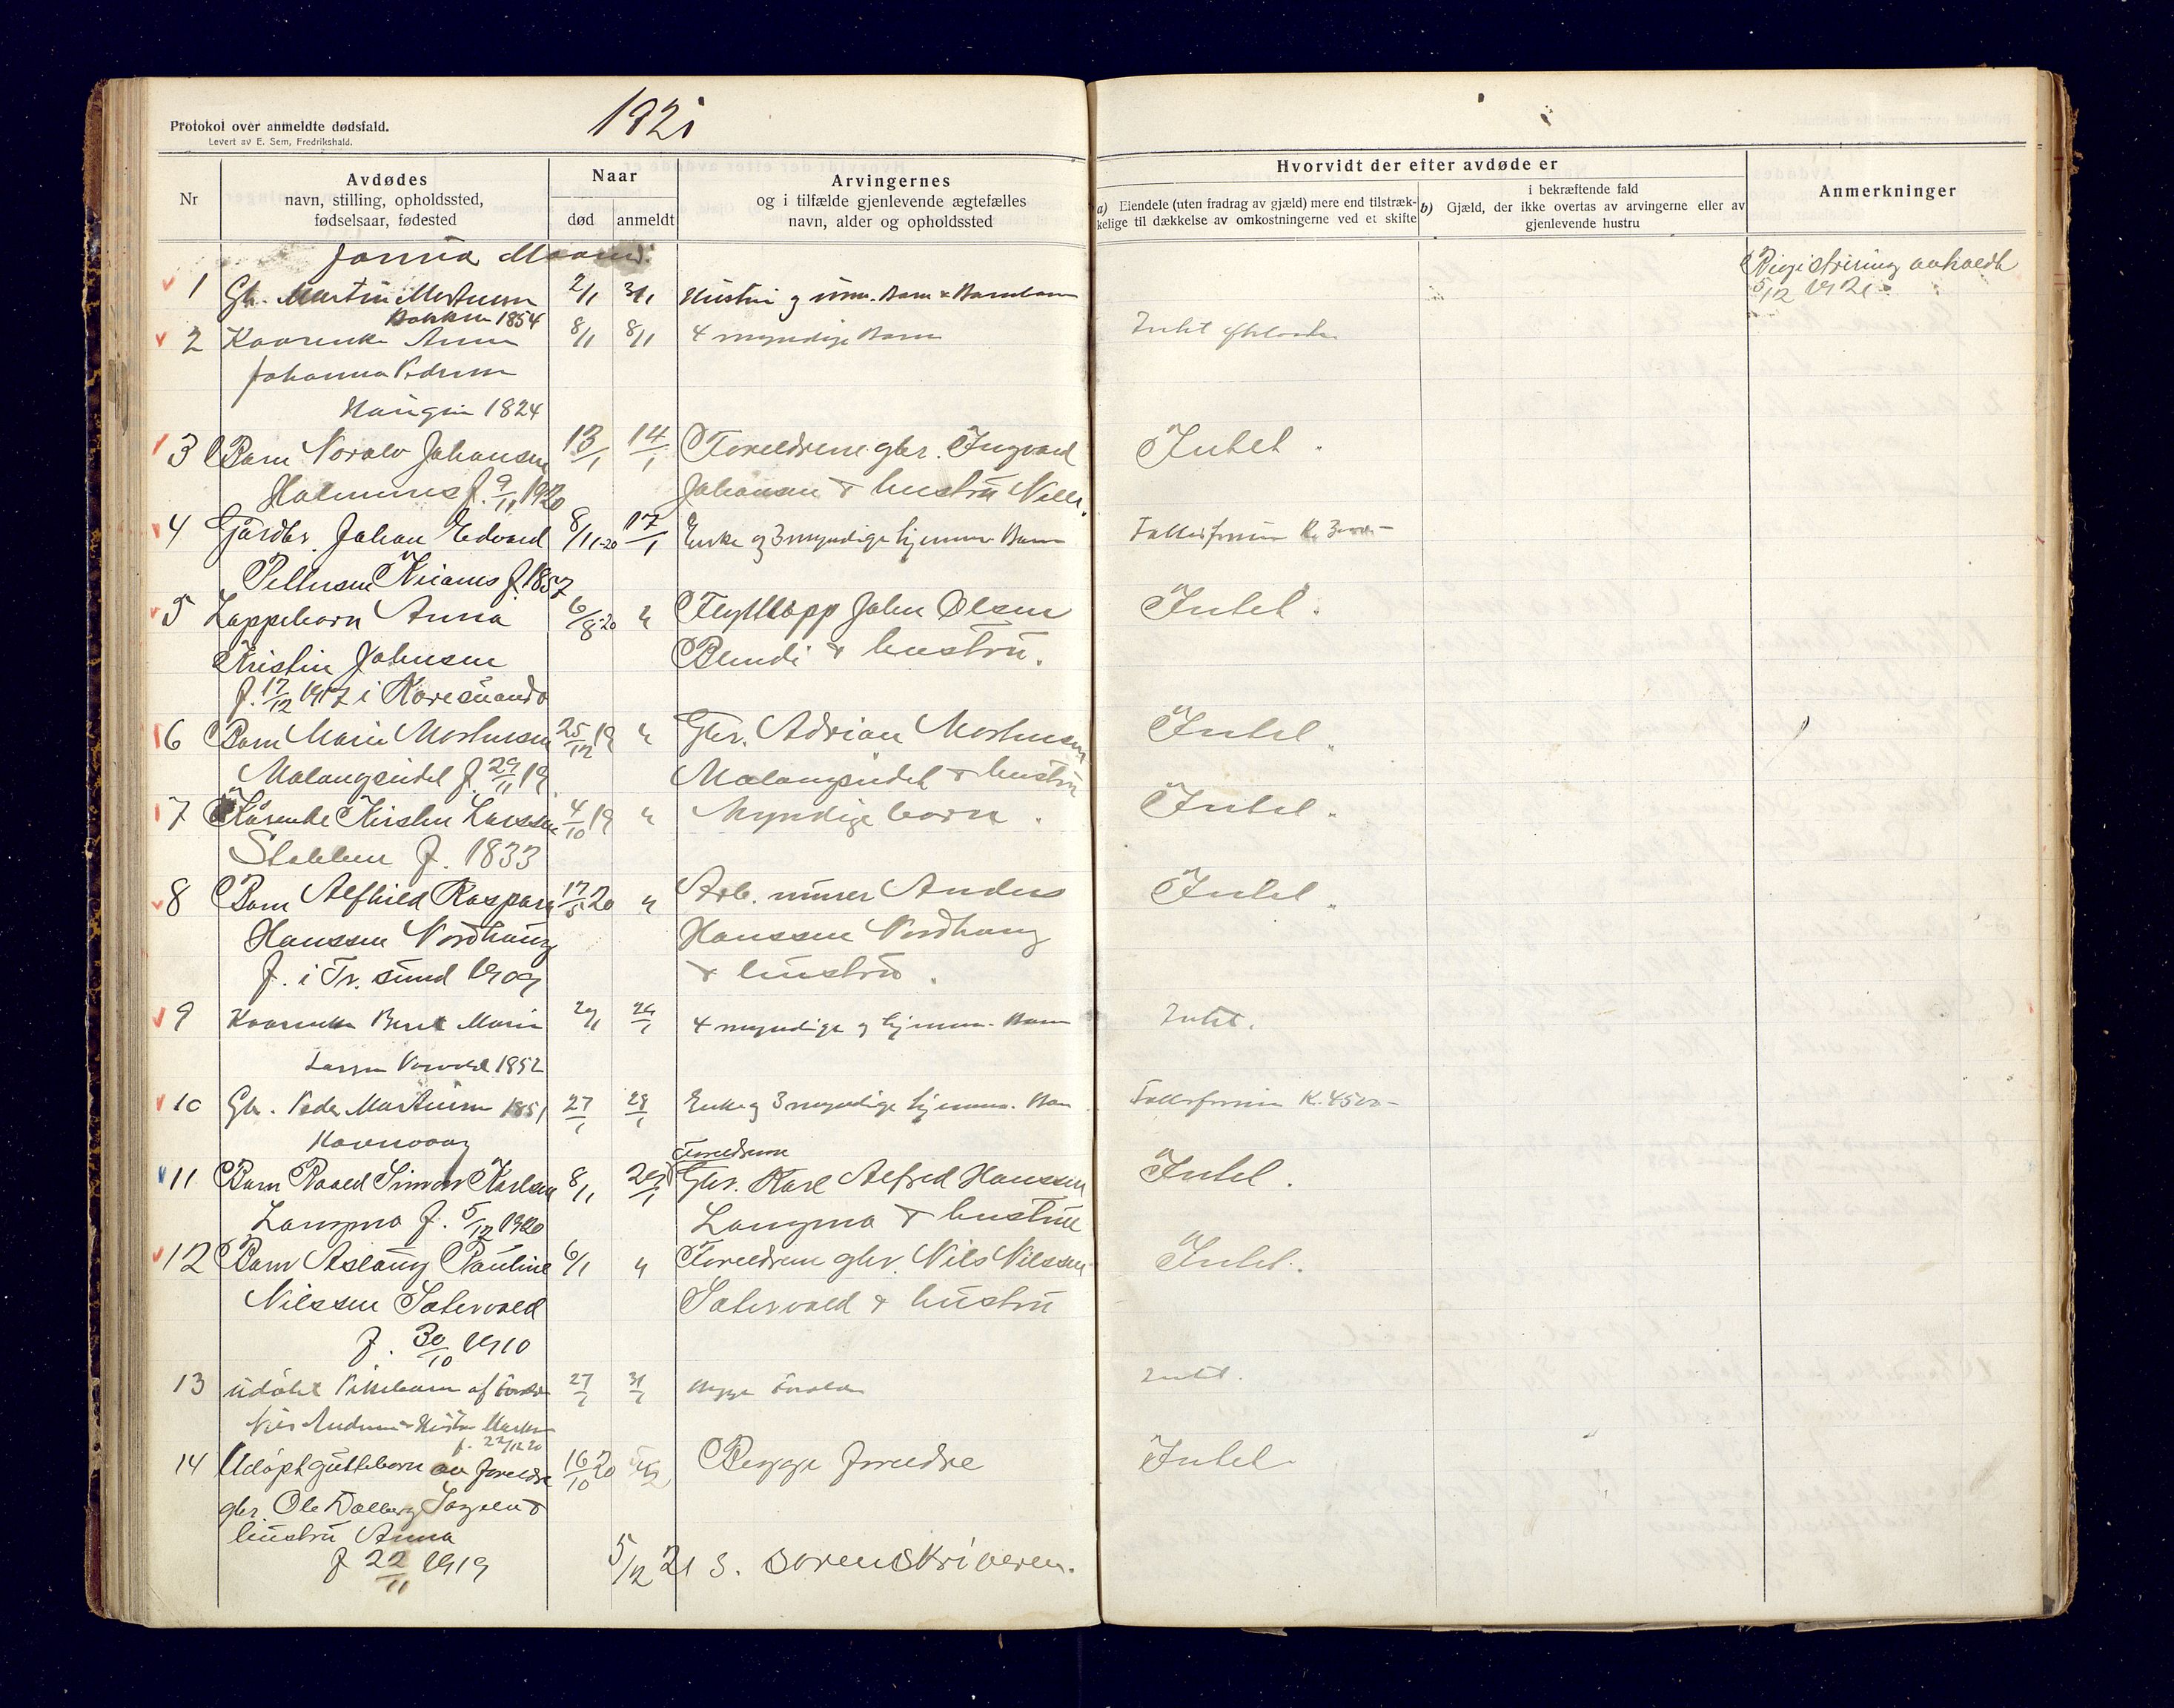 1921
Protokol over anmeldte dødsfald.
Levert av E. Sem, Fredrikshald.
Nr
Avdødes
navn, stilling, opholdssted,
fødselsaar, fødested
Naar
død
anmeldt
Arvingernes
og i tilfælde gjenlevende ægtefælles
navn, alder og opholdssted
Hvorvidt der efter avdøde er
a) Eiendele (uten fradrag av gjæld) mere end tilstræk-
kelige til dækkelse av omkostningerne ved et skifte
i bekræftende fald
b) Gjæld, der ikke overtas av arvingerne eller av
gjenlevende hustru
Anmerkninger
Januar Maaned.
1 Gbr. Martin Mortensen 2/1 3/1 Hustru og Barn & Barnebarn Registrering
Bakken 1854 5/12 1921
2 Kaarenke Anna 8/1 8/1 4 myndige Barn Intet
Johanna Pedersen
Haugen 1824
3 Barn Norolv Johansen 13/1 14/1 Foreldrene gbr. Ingvard Intet.
f. 9/11 1920 Johansen & hustru
4 Gårdbr. Johan Edvard 8/11-20 17/1 Enke og 3 myndige hjemme. Barn Fællesformue K.
Pettersen f. 1857
5 Lappebarn Anna 6/8-20 " Flytlapp John Olsen Intet.
Kristin Johnsen Blindi & hustru.
f. 17/12 1917 i Karesuando
6 Barn Marie Mortensen 25/12 19 " Gbr. Adrian Mortensen Intet.
Malangseidet f. 29/11 19. Malangseidet & hustru
7 Kårenke Kirsten Larssen 4/10 19 " Myndige born. Intet.
Stakken f. 1833
8 Barn Alfhild Kaspara 17/5 20 " Arb. murer Anders Intet.
Hanssen Nordhaug Hanssen Nordhaug
f. i Tr. sund 1909 & hustru.
9 Kaarenke Berit Marie 4 myndige og hjemme. Barn Intet.
Larsen 1852
10 Gbr. Peder Martinsen 1851 27/1 Enke og 3 myndige hjemme. Barn Fællesformue K. 4500-
11 Barn Roald Simon Karlsen 8/1 29/1 Foreldrene Gbr. Karl Alfred Hanssen Intet.
f. 5/12 1920 & hustru
12 Barn Aslaug Pauline 6/1 " Foreldrene gbr. Nils Nilssen Intet.
Nilssen Satervold Satervold & hustru
f. 30/10 1910
13 udøbt Pikebarn af 27/1 31/1 Begge Intet.
f. 22/12 20
14 Udøpt guttebarn av foreldre 16/10 20 Begge foreldre Intet
gbr. Ole Dalberg &
hustru Anna
f 22/11 1919
5/12 21 S. sorenskriveren.